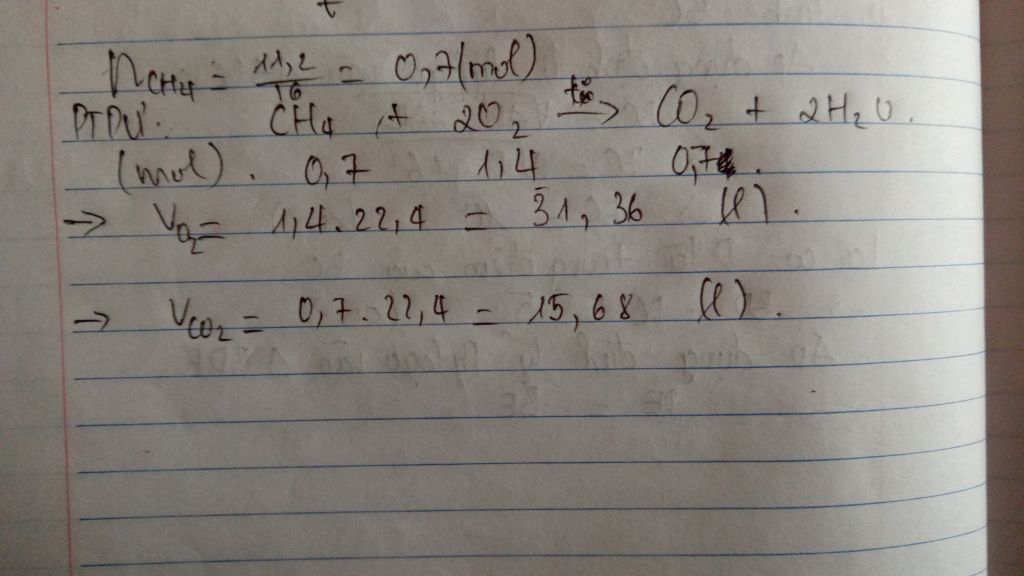 n CH4 = 11,2/16 = 0,7 (mol)
PTPƯ: CH4 + 2O2 —t°→ CO2 + 2H2O.
(mol). 0,7 1,4 0,7.
→ VO2 = 1,4.22,4 = 31,36 (l).
→ VCO2 = 0,7.22,4 = 15,68 (l).